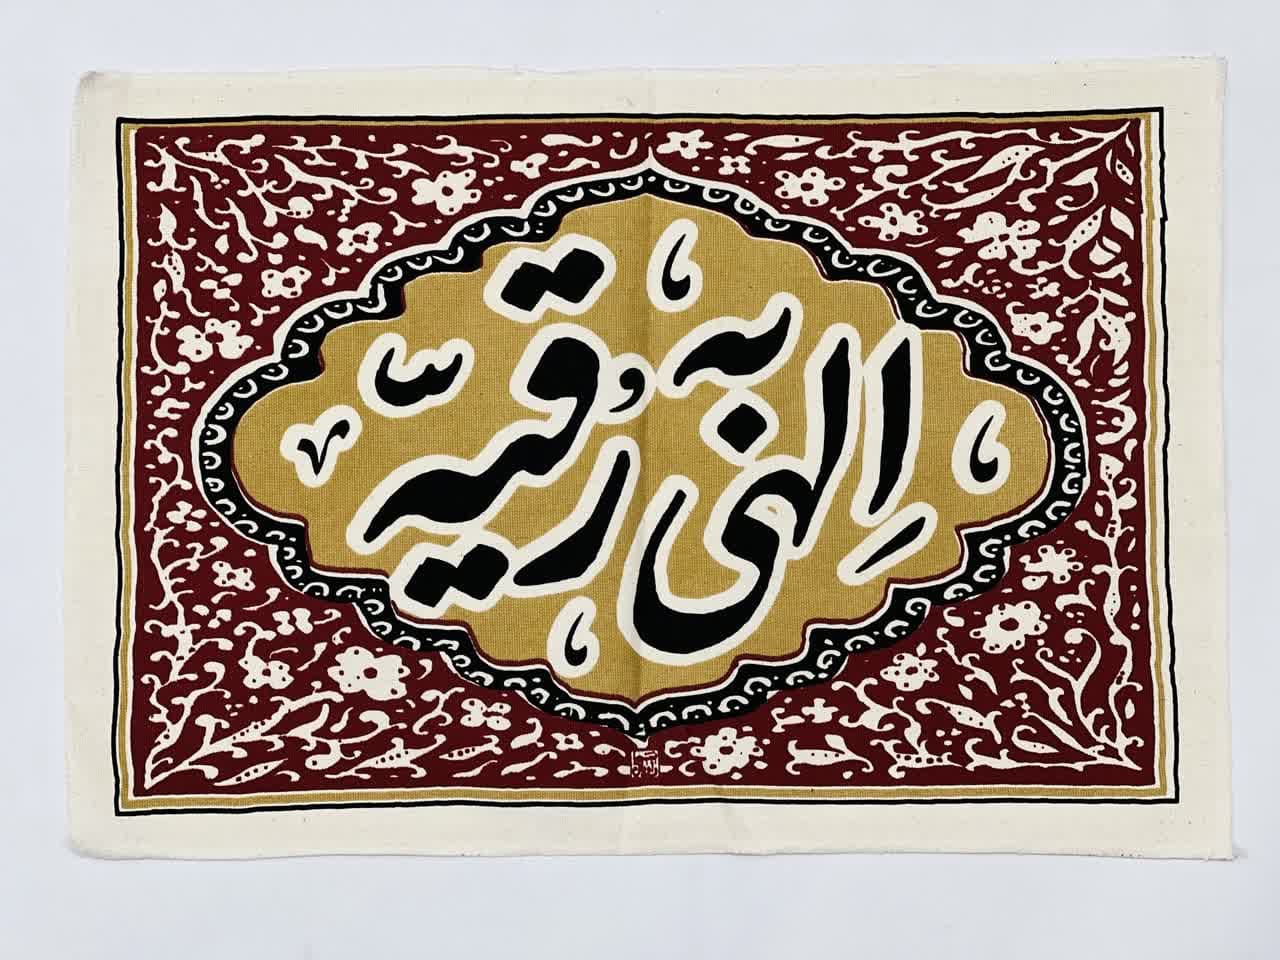 الهی به رقیّه